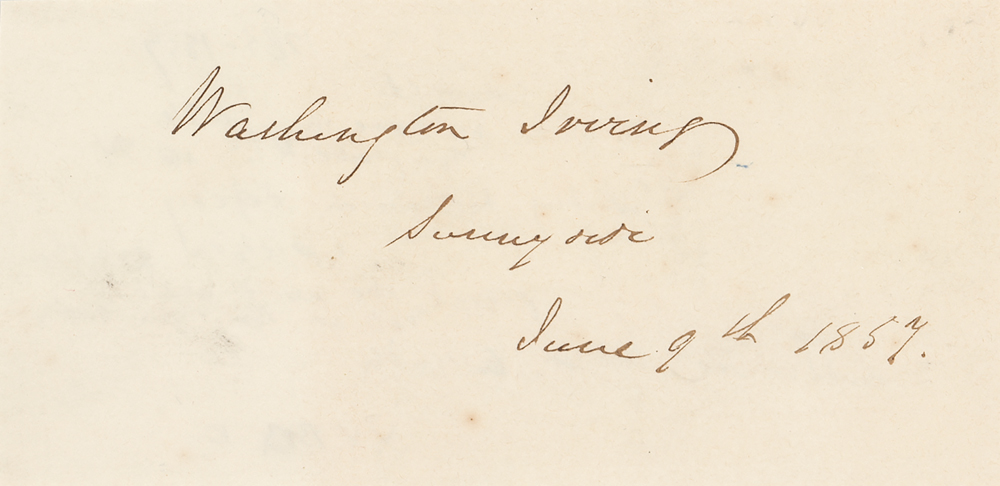 Washington Irving
Sunnyside
June 9th 1857.